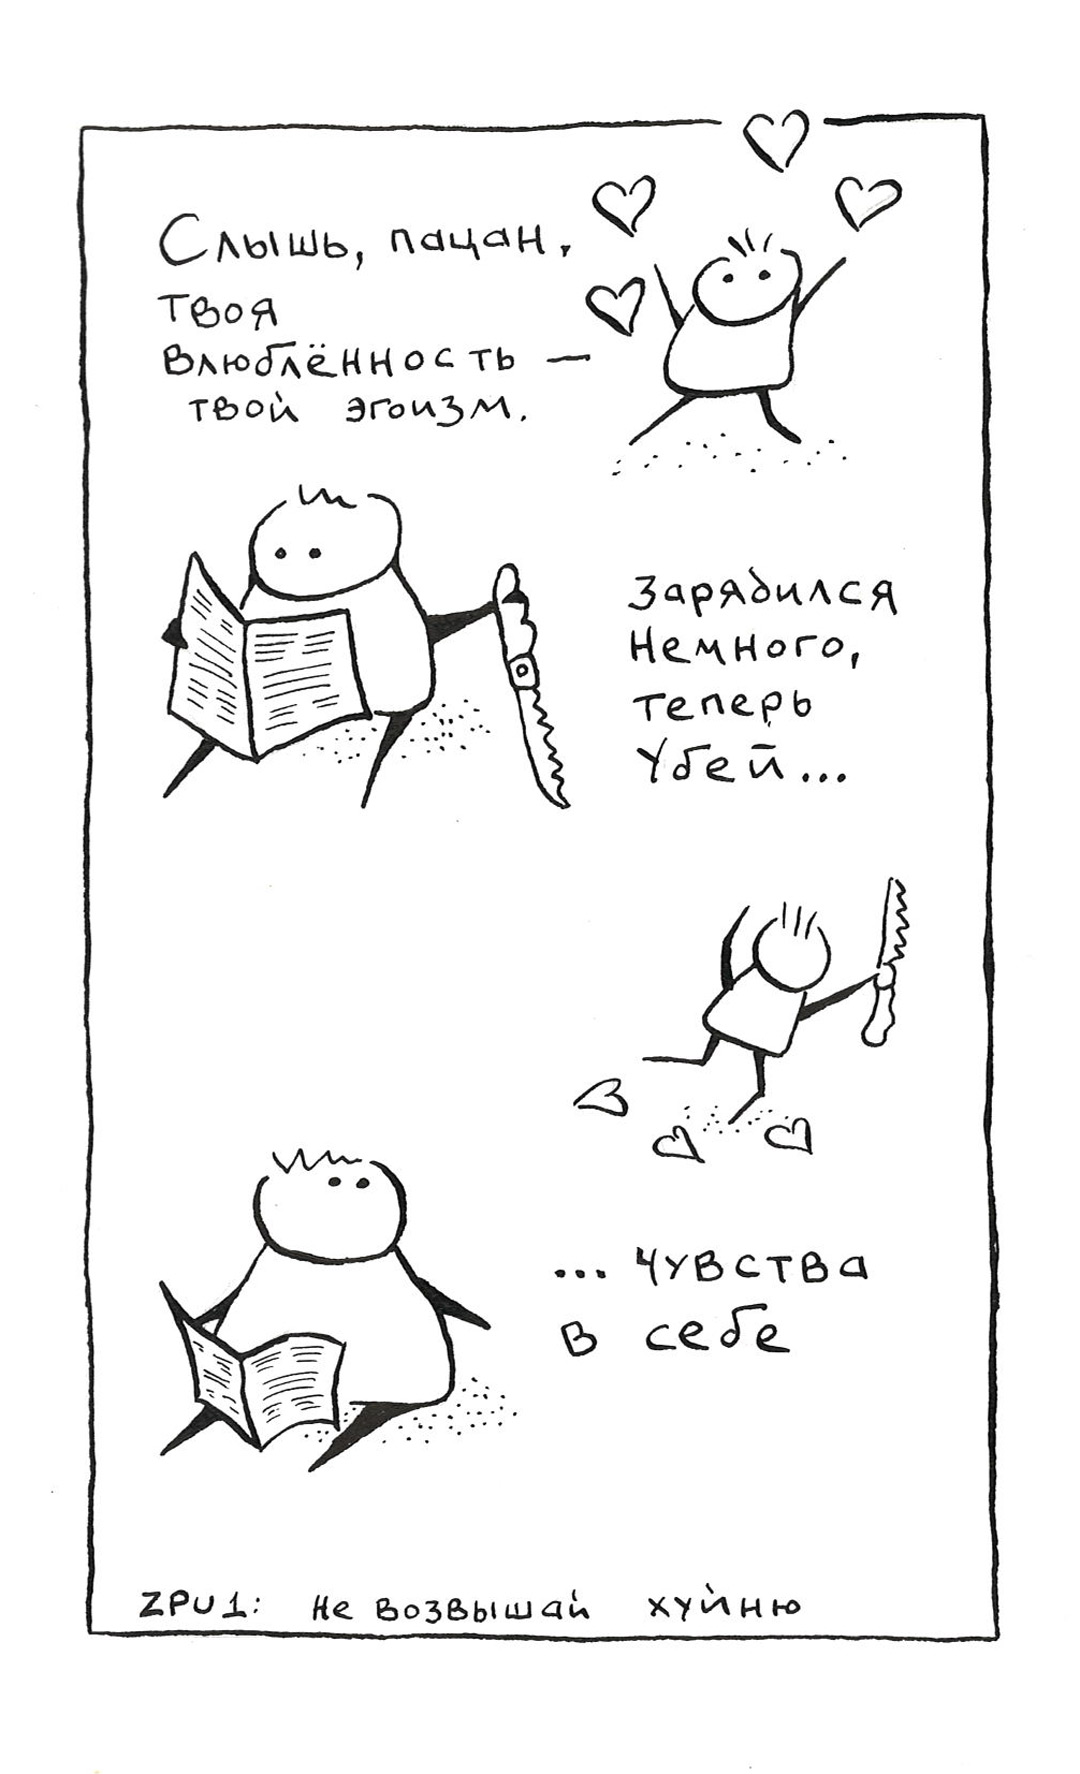 Слышь, пацан,
твоя
влюблённость —
твой эгоизм.
Зарядился
немного,
теперь
убей...
... чувства
в себе
ZPU1: не возвышай хуйню